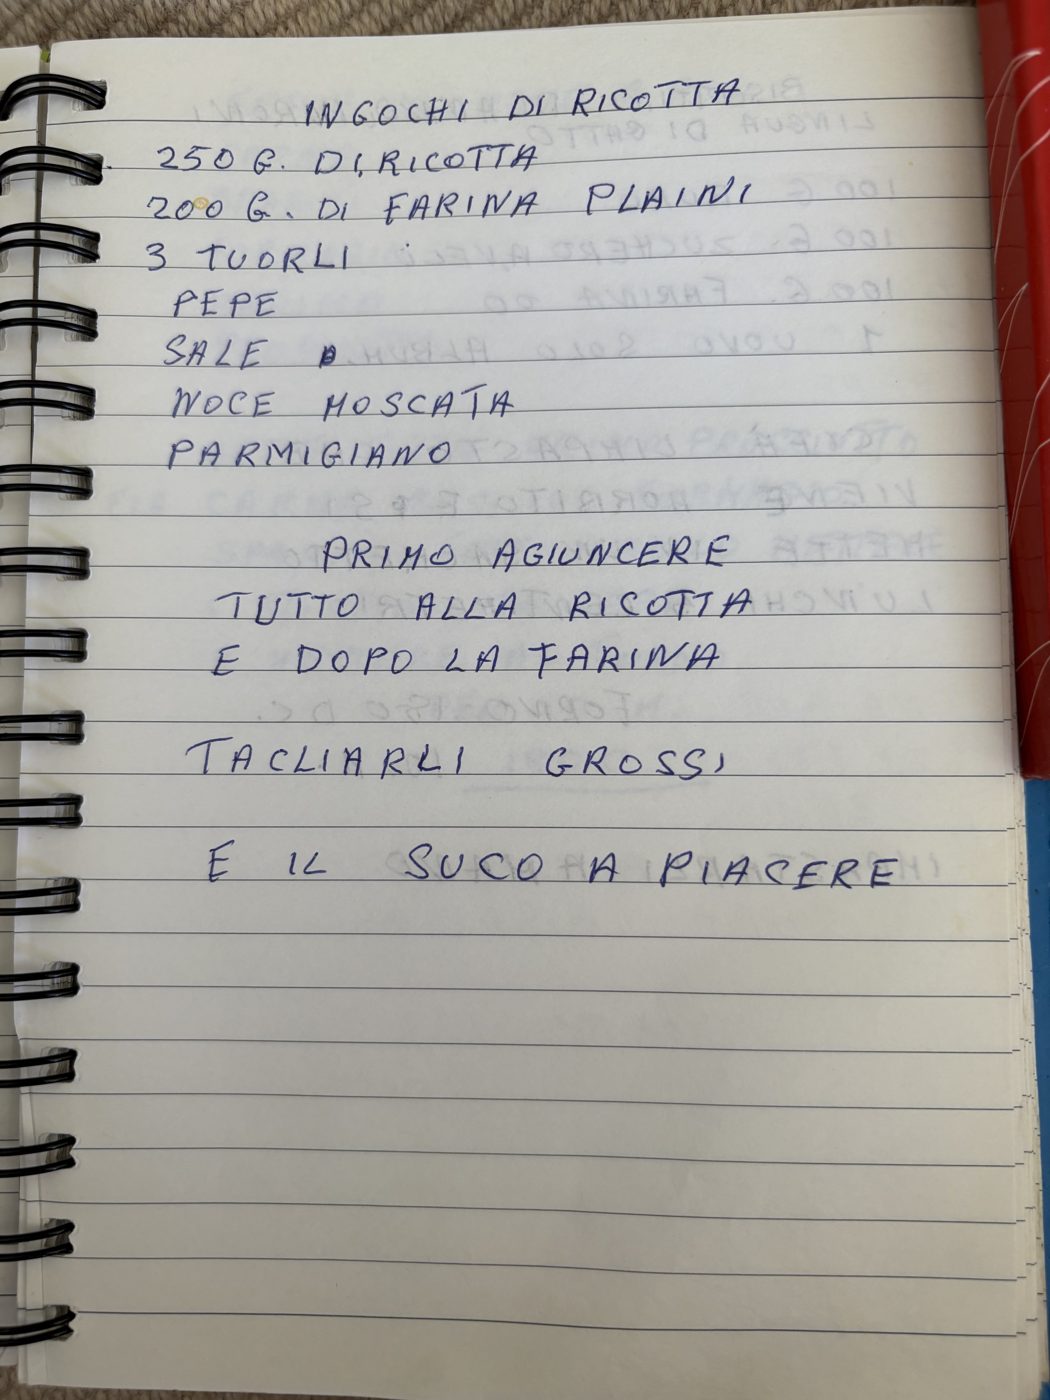 INGOCHI DI RICOTTA
250 G. DI RICOTTA
200 G. DI FARINA PLAINI
3 TUORLI
PEPE
SALE
NOCE MOSCATA
PARMIGIANO
PRIMO AGIUNCERE
TUTTO ALLA RICOTTA
E DOPO LA FARINA
TACLIARLI GROSSI
E IL SUCO A PIACERE